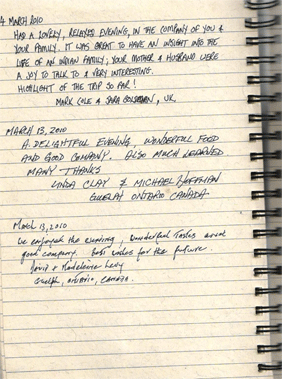 4 MARCH 2010
HAD A LOVELY, RELAXED EVENING, IN THE COMPANY OF YOU &
YOUR FAMILY. IT WAS GREAT TO HAVE AN INSIGHT INTO THE
LIFE OF AN INDIAN FAMILY; YOUR MOTHER & HUSBAND WERE
A JOY TO TALK TO & VERY INTERESTING.
HIGHLIGHT OF THE TRIP SO FAR!
MARK COLE & SARA , UK.
MARCH 13, 2010
A DELIGHTFUL EVENING, WONDERFUL FOOD
AND GOOD COMPANY. ALSO MUCH LEARNED
MANY THANKS
LINDA CLAY & MICHAEL HOFFMAN
GUELPH ONTARIO CANADA
March 13, 2010
We enjoyed the evening, wonderful tastes and
good company. Best wishes for the future.
& Madeleine Levy
Guelph, ONTARIO, CANADA.